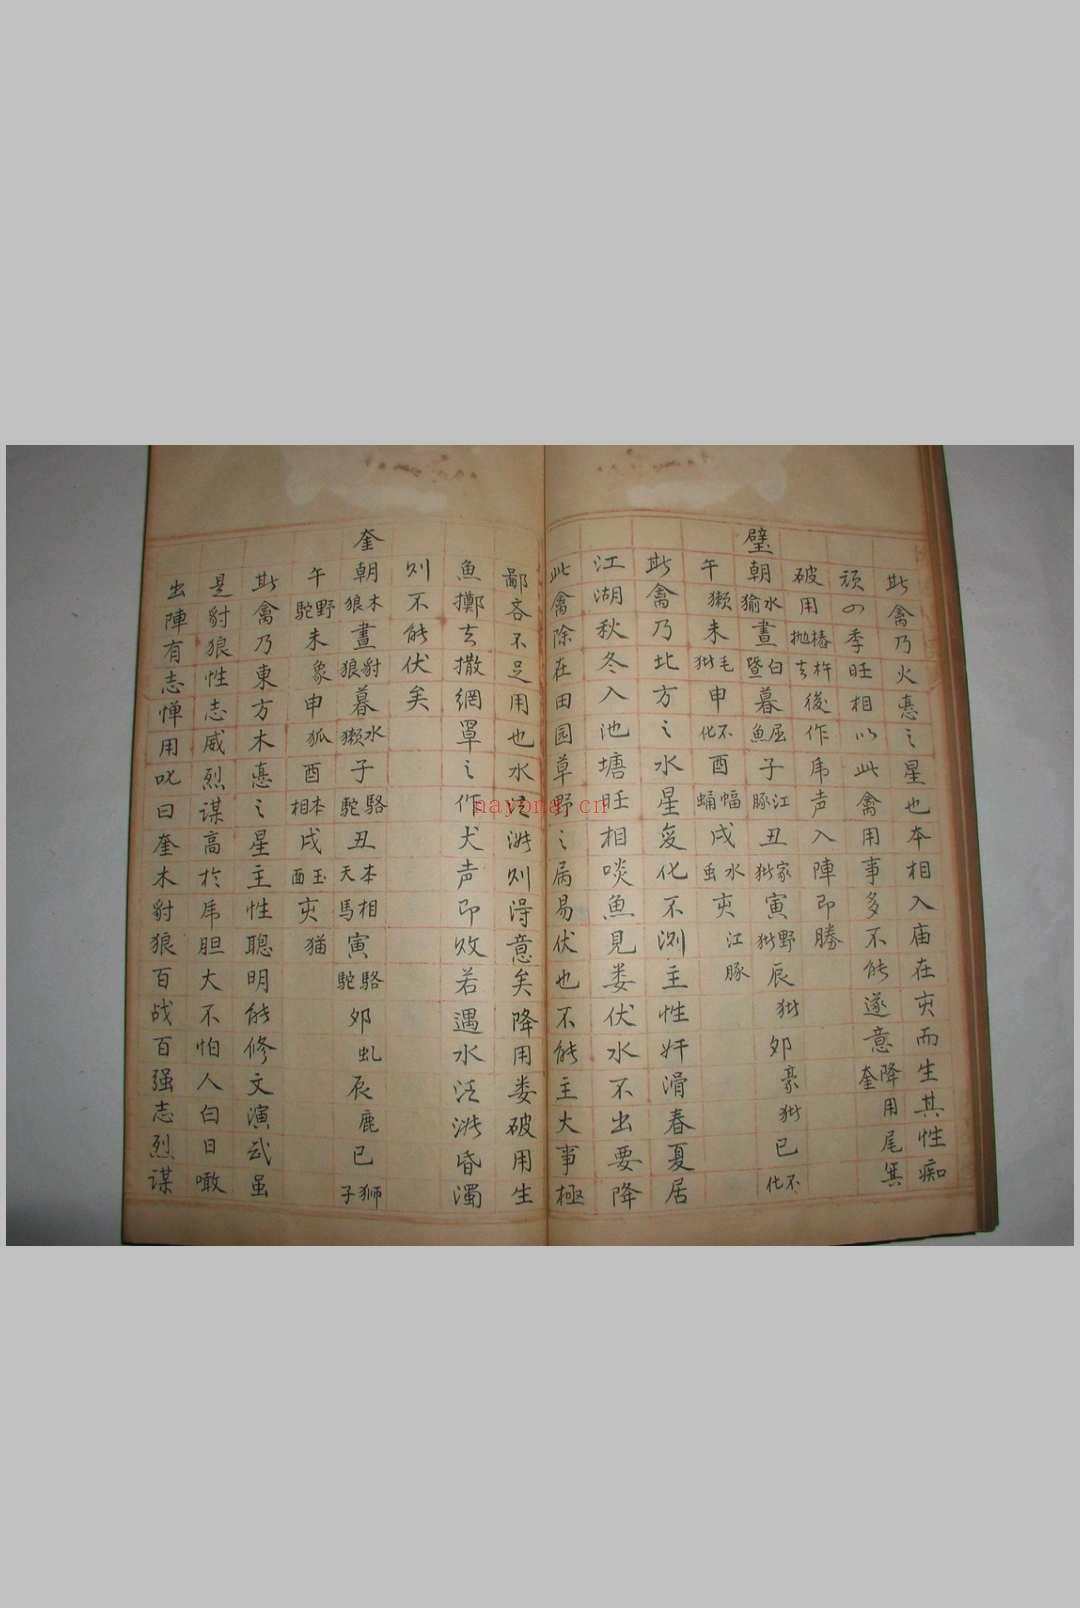 此禽乃火德之星也本相入庙在亥而生其性痴
顽四季旺相以此禽用事多不能遂意降用尾箕奎
破用椿杵抛去後作虎声入陣即勝
壁朝水㺄晝白暨暮屈魚子江豚丑家㺄寅野㺄辰㺄卯豪㺄巳不化
午獺未毛㺄申不化酉蝙蝠戌水虫亥江豚
此禽乃北方之水星变化不测主性奸滑春夏居
江湖秋冬入池塘旺相啖魚見娄伏水不出要降
此禽除在田园草野之局易伏也不能主大事極
鄙吝不足用也水泛洪则得意矣降用娄破用生
魚擲去撒網罩之作犬声即败若遇水泛洪昏濁
则不能伏矣
奎朝木狼晝豺狼暮水獺子駱駝丑本天相馬寅駱駝卯虬辰鹿巳狮子
午野駝未象申狐酉本相戌玉面亥猫
此禽乃東方木德之星主性聰明能修文演武虽
是豺狼性志威烈谋高於虎胆大不怕人白日噉
出陣有志惮用叱曰奎木豺狼百战百强志烈谋
nayona.cn